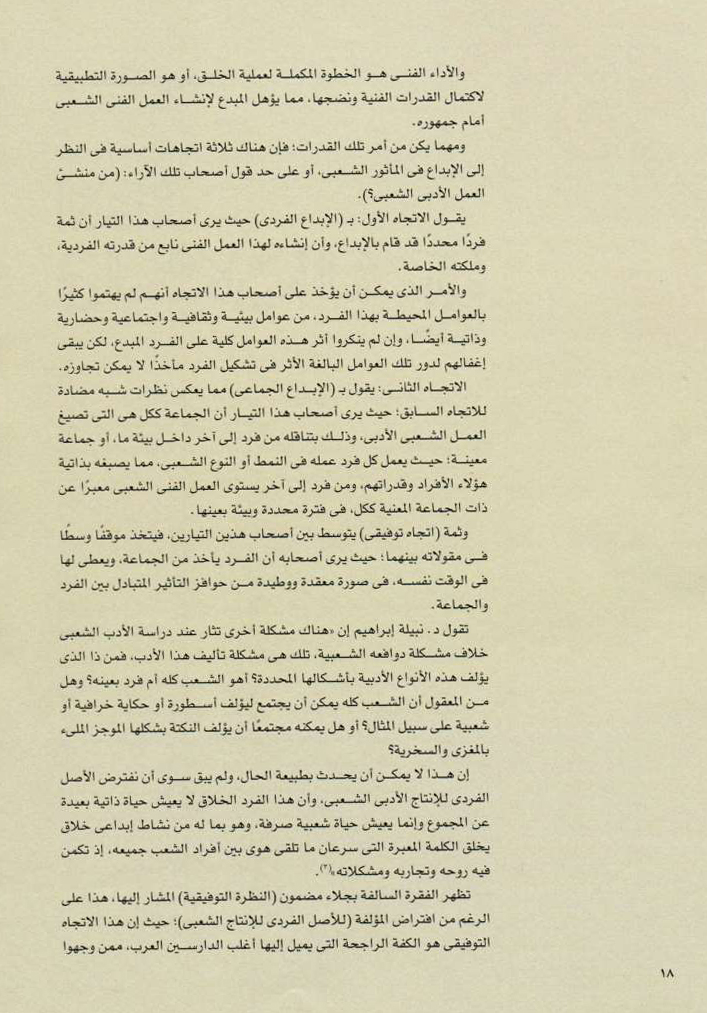 والأداء الفنـى هـو الخطوة المكملـة لعملية الخلـق، أو هو الصـورة التطبيقية
لاكتمال القدرات الفنية ونضجها، مما يؤهل المبدع لإنشـاء العمل الفنى الشـعبى
أمام جمهوره.
ومهما يكن من أمر تلك القدرات؛ فإن هناك ثلاثة اتجاهات أساسية فى النظر
إلى الإبداع فى المأثور الشـعبى، أو على حد قول أصحاب تلك الآراء: (من منشـئ
العمل الأدبى الشعبى؟).
يقـول الاتجاه الأول: بـ (الإبداع الفردى) حيث يرى أصحاب هذا التيار أن ثمة
فردًا محددًا قد قام بالإبداع، وأن إنشاءه لهذا العمل الفنى نابع من قدرته الفردية،
وملكته الخاصة.
والأمـر الذى يمكـن أن يؤخذ على أصحاب هذا الاتجاه أنهـم لم يهتموا كثيرًا
بالعوامـل المحيطـة بهذا الفـرد، من عوامل بيئيـة وثقافيـة واجتماعية وحضارية
وذاتيـة أيضًـا، وإن لم ينكروا أثر هـذه العوامل كلية على الفـرد المبدع، لكن يبقى
إغفالهم لدور تلك العوامل البالغة الأثر فى تشكيل الفرد مأخذًا لا يمكن تجاوزه.
الاتجـاه الثانـى: يقول بـ (الإبـداع الجماعى) مما يعكس نظرات شـبه مضادة
للاتجاه السـابق؛ حيث يرى أصحاب هذا التيـار أن الجماعة ككل هى التى تصيغ
العمـل الشـعبى الأدبى، وذلـك بتناقله من فرد إلى آخر داخـل بيئة ما، أو جماعة
معينـة؛ حيـث يعمل كل فرد عمله فى النمط أو النوع الشـعبى، مما يصبغه بذاتية
هؤلاء الأفراد وقدراتهم، ومن فرد إلى آخر يستوى العمل الفنى الشعبى معبرًا عن
ذات الجماعة المعنية ككل، فى فترة محددة وبيئة بعينها.
وثمة (اتجاه توفيقى) يتوسط بين أصحاب هذين التيارين، فيتخذ موقفًا وسطًا
فـى مقولاته بينهما؛ حيث يرى أصحابه أن الفـرد يأخذ من الجماعة، ويعطى لها
فى الوقت نفسـه، فى صورة معقدة ووطيدة مـن حوافز التأثير المتبادل بين الفرد
والجماعة.
تقول د. نبيلة إبراهيم إن «هناك مشكلة أخرى تثار عند دراسة الأدب الشعبى
خلاف مشـكلة دوافعه الشـعبية، تلك هى مشكلة تأليف هذا الأدب، فمن ذا الذى
يؤلف هذه الأنواع الأدبية بأشـكالها المحددة؟ أهو الشـعب كله أم فرد بعينه؟ وهل
مـن المعقول أن الشـعب كله يمكن أن يجتمع ليؤلف أسـطورة أو حكاية خرافية أو
شعبية على سبيل المثال؟ أو هل يمكنه مجتمعًا أن يؤلف النكتة بشكلها الموجز الملىء
بالمغزى والسخرية؟
إن هـذا لا يمكـن أن يحـدث بطبيعة الحال، ولم يبق سـوى أن نفترض الأصل
الفردى للإنتاج الأدبى الشـعبى، وأن هذا الفرد الخلاق لا يعيش حياة ذاتية بعيدة
عن المجموع وإنما يعيش حياة شعبية صرفة، وهو بما له من نشاط إبداعى خلاق
يخلق الكلمة المعبرة التى سرعان ما تلقى هوى بين أفراد الشعب جميعه، إذ تكمن
فيه روحه وتجاربه ومشكلاته»(٣).
تظهر الفقرة السالفة بجلاء مضمون (النظرة التوفيقية) المشار إليها، هذا على
الرغم من افتراض المؤلفة (للأصل الفردى للإنتاج الشعبى)؛ حيث إن هذا الاتجاه
التوفيقى هو الكفة الراجحة التى يميل إليها أغلب الدارسـين العرب، ممن وجهوا
١٨